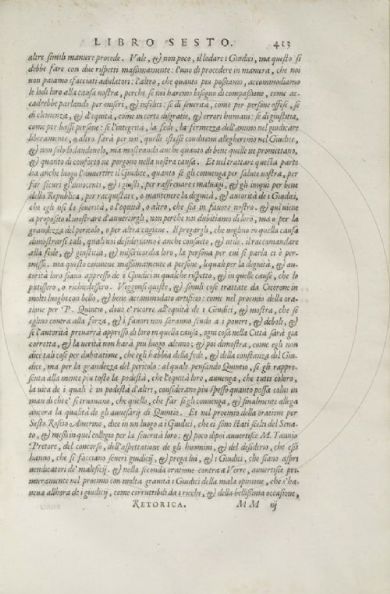 LIBRO SESTO. 413
altre simili maniere procede. Vale, & non poco, il lodare i Giudici, ma questo si
debbe fare con due rispetti massimamente: l'uno di procedere in maniera, che noi
non paiamo sfacciati adulatori: l'altro, che quanto più possiamo, accommodiamo
le lodi loro alla causa nostra, perche se noi haremo bisogno di compassione, come ac-
cadrebbe parlando per miseri, & infelici: se di severità, come per persone offese, se
di clemenza, & d'equità, come in certe disgratie, & errori humani: se di giustitia,
come per basse persone: se l'integrità, la fede, la fermezza dell'animo nel giudicare
liberamente, o altro sarà per noi, quelle stesse conduttioni allegheremo nel Giudice,
& non solo lodandolo, ma mostrando anche quanto di bene quelle ne promettano,
& quanto di conforto ne porgono nella nostra causa. Et nel trattare questa parte
da anche luogo l'avvertire il Giudice, quanto
della Republica, per racquistare, o mantenere la dignità, & autorità de i Giudici,
che egli usi la severità, o l'equità, o altro, che sia in favore nostro. & qui viene
a proposito il mostrare d'avvertirgli, non perche noi dubitiamo di loro, ma o per la
grandezza del pericolo, o per altra cagione. Il pregargli, che voglino in quella causa
dimostrarsi tali, quali noi desideriamo è anche consueto, & utile. il raccomandare
alla fede, & giustitia, & misericordia loro, la persona per cui si parla ci è per-
messo. ma questo conviene massimamente a persone, le quali per la dignità, & au-
torità loro siano appresso de i Giudici in qualche rispetto, & in quelle cause, che lo
patissero, o richiedessero. Veggonsi queste, & simili cose trattate da Cicerone in
molti luoghi con bello, & bene accommodato artificio: come nel proemio della ora-
tione per P. Quintio, dove e' ricorre all'equità de i Giudici, & mostra, che se
eglino contra alla forza, & i favori non saranno scudo a i poveri, & deboli, &
se l'autorità privata harà appresso di loro in quella causa, ogni cosa nella Città sarà già
corrotta, & la verità non harà più luogo alcuno: & poi dimostra, come egli non
dice tali cose per dubitatione, che egli habbia della fede, & della constanza del Giu-
dice, ma per la grandezza del pericolo: al quale pensando Quintio, se gli rappre-
senta alla mente più tosto la podestà, che l'equità loro, avvenga, che tutti coloro,
la vita de i quali è in podestà d'altri, considerano più spesso quanto possa colui in
man di che e' si ritrovano, che quello, che far se gli convenga, & finalmente allega
ancora la qualità de gli avversarij di Quintio. Et nel proemio della oratione per
Sesto Roscio Amerino, dice in un luogo a i Giudici, che ei sono stati scelti del Sena-
to, & messi in quel collegio per la severità loro: & poco dipoi avvertisce M. Fannio
Pretore, del concorso, dell'aspettatione de gli huomini, & del desiderio, che essi
hanno, che si facciano severi giudicij, & prega lui, & i Giudici, che siano aspri
vendicatori de' maleficij. & nella seconda oratione contra a Verre, avvertisce pri-
mieramente nel proemio con molta gravità i Giudici della mala opinione, che s'ha-
veva allhora de i giudicij, come corruttibili da i ricchi, & della bellissima occasione,
RETORICA. MM iij